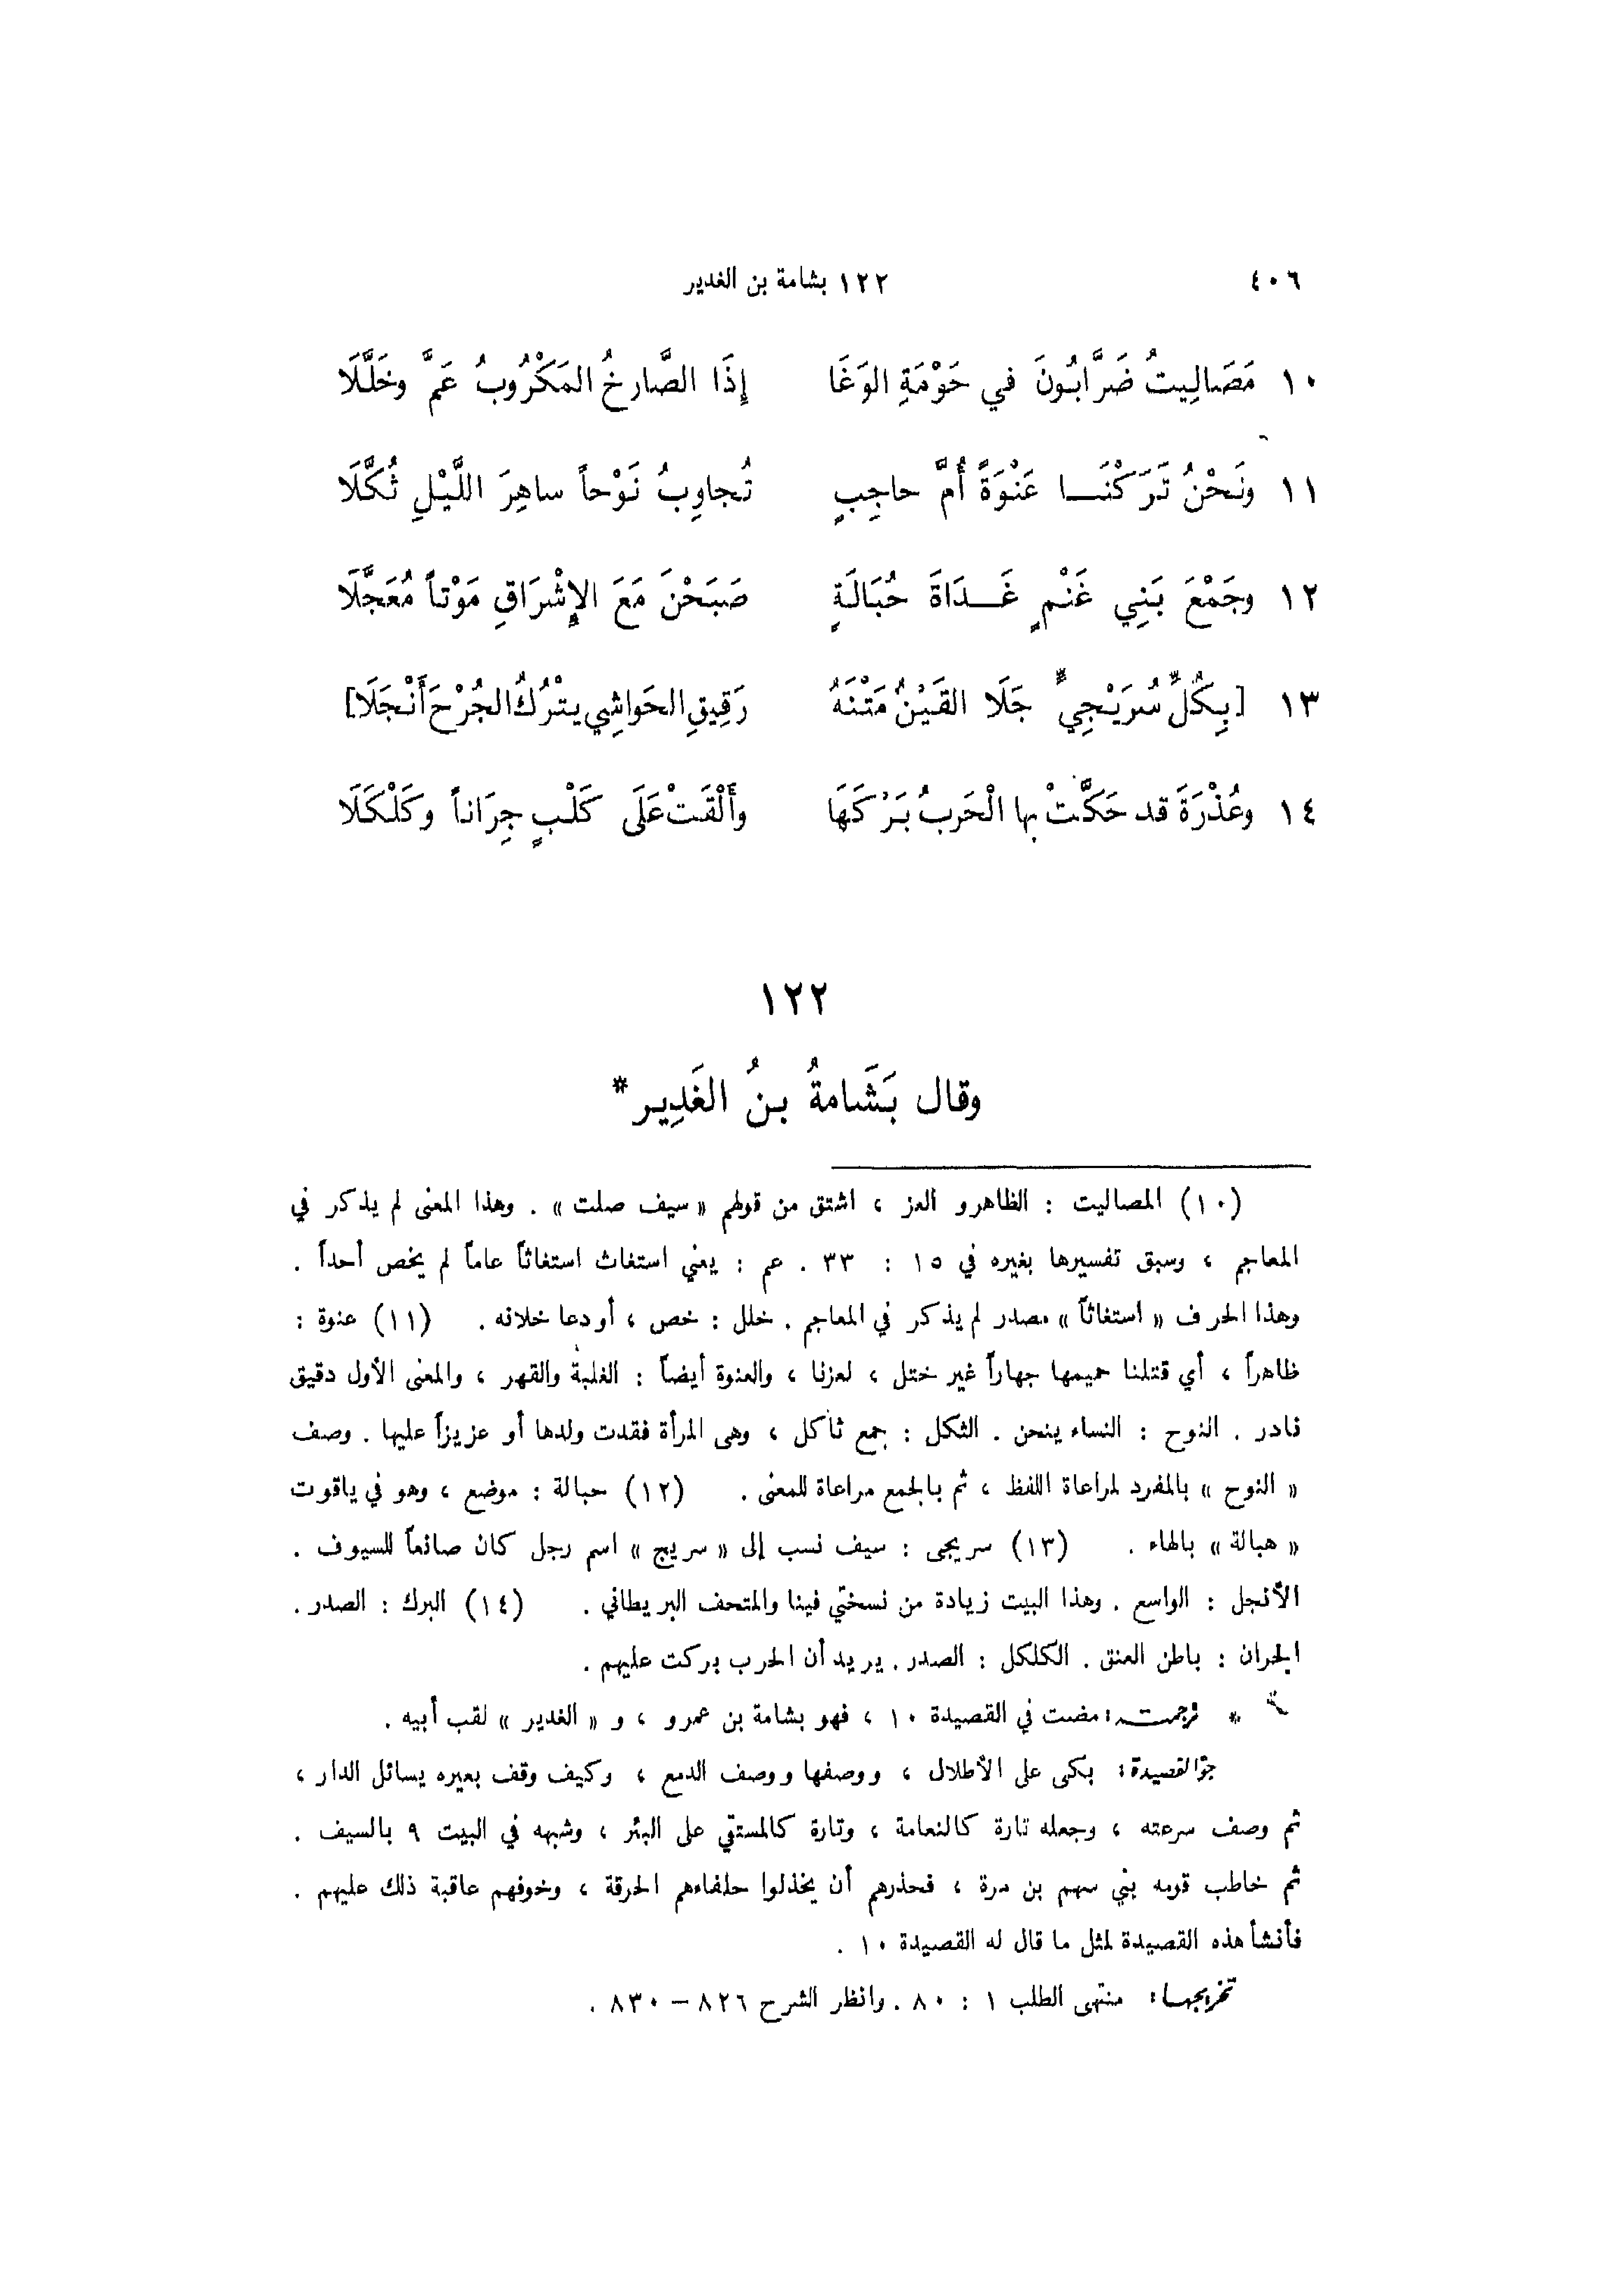 ٤٠٦ ١٢٢ بشامة بن الغدير
١٠ مَصَالِيتُ ضَرَّابُونَ في حَوْمَةِ الوَغَا إِذَا الصَّارِخُ المَكْرُوبُ عَمَّ وخَلَّلَا
١١ ونَحْنُ تَرَكْنَا عَنْوَةً أُمَّ حاجِبٍ تُجاوِبُ نَوْحاً ساهِرَ اللَّيْلِ ثُكَّلَا
١٢ وجَمْعَ بَنِي غَنْمٍ غَدَاةَ حُبَالَةٍ صَبَحْنَ مَعَ الإِشْرَاقِ مَوْتاً مُعَجَّلَا
١٣ [بِكُلِّ سُرَيْجِيٍّ جَلَا القَيْنُ مَتْنَهُ رَقِيقِ الحَواشِي يتْرُكُ الجُرْحَ أَنْجَلَا]
١٤ وعُذْرَةَ قد حَكَّتْ بها الْحَربُ بَرْكَهَا وأَلْقَتْ عَلَى كَلْبٍ جِرَاناً وكَلْكَلَا
١٢٢
وقال بَشَامةُ بنُ الغَدِير*
(١٠) المصاليت : الظاهرو العز ، اشتق من قولهم « سيف صلت » . وهذا المعنى لم يذكر في
المعاجم ، وسبق تفسيرها بغيره في ١٥ : ٣٣ . عم : يعني استغاث استغاثاً عاماً لم يخص أحداً .
وهذا الحرف « استغاثاً » مصدر لم يذكر في المعاجم . خلل : خص ، أو دعا خلانه . (١١) عنوة :
ظاهراً ، أي قتلنا حميمها جهاراً غير ختل ، لعزنا ، والعنوة أيضاً : الغلبة والقهر ، والمعنى الأول دقيق
نادر . النوح : النساء ينحن . الثكل : جمع ثاكل ، وهى المرأة فقدت ولدها أو عزيزاً عليها . وصف
« النوح » بالمفرد لمراعاة اللفظ ، ثم بالجمع مراعاة للمعنى . (١٢) حبالة : موضع ، وهو في ياقوت
« هبالة » بالهاء . (١٣) سريجى : سيف نسب إلى « سريج » اسم رجل كان صانعاً للسيوف .
الأنجل : الواسع . وهذا البيت زيادة من نسختي فينا والمتحف البريطاني . (١٤) البرك : الصدر .
الجران : باطن العنق . الكلكل : الصدر . يريد أن الحرب بركت عليهم .
* ترجمته: مضت في القصيدة ١٠ ، فهو بشامة بن عمرو ، و « الغدير » لقب أبيه .
جو القصيدة: بكى على الأطلال ، ووصفها ووصف الدمع ، وكيف وقف بعيره يسائل الدار ،
ثم وصف سرعته ، وجعله تارة كالنعامة ، وتارة كالمستقي على البئر ، وشبهه في البيت ٩ بالسيف .
ثم خاطب قومه بني سهم بن مرة ، فحذرهم أن يخذلوا حلفاءهم الحرقة ، وخوفهم عاقبة ذلك عليهم .
فأنشأ هذه القصيدة لمثل ما قال له القصيدة ١٠ .
تخريجها: منتهى الطلب ١ : ٨٠ . وانظر الشرح ٨٢٦ – ٨٣٠ .